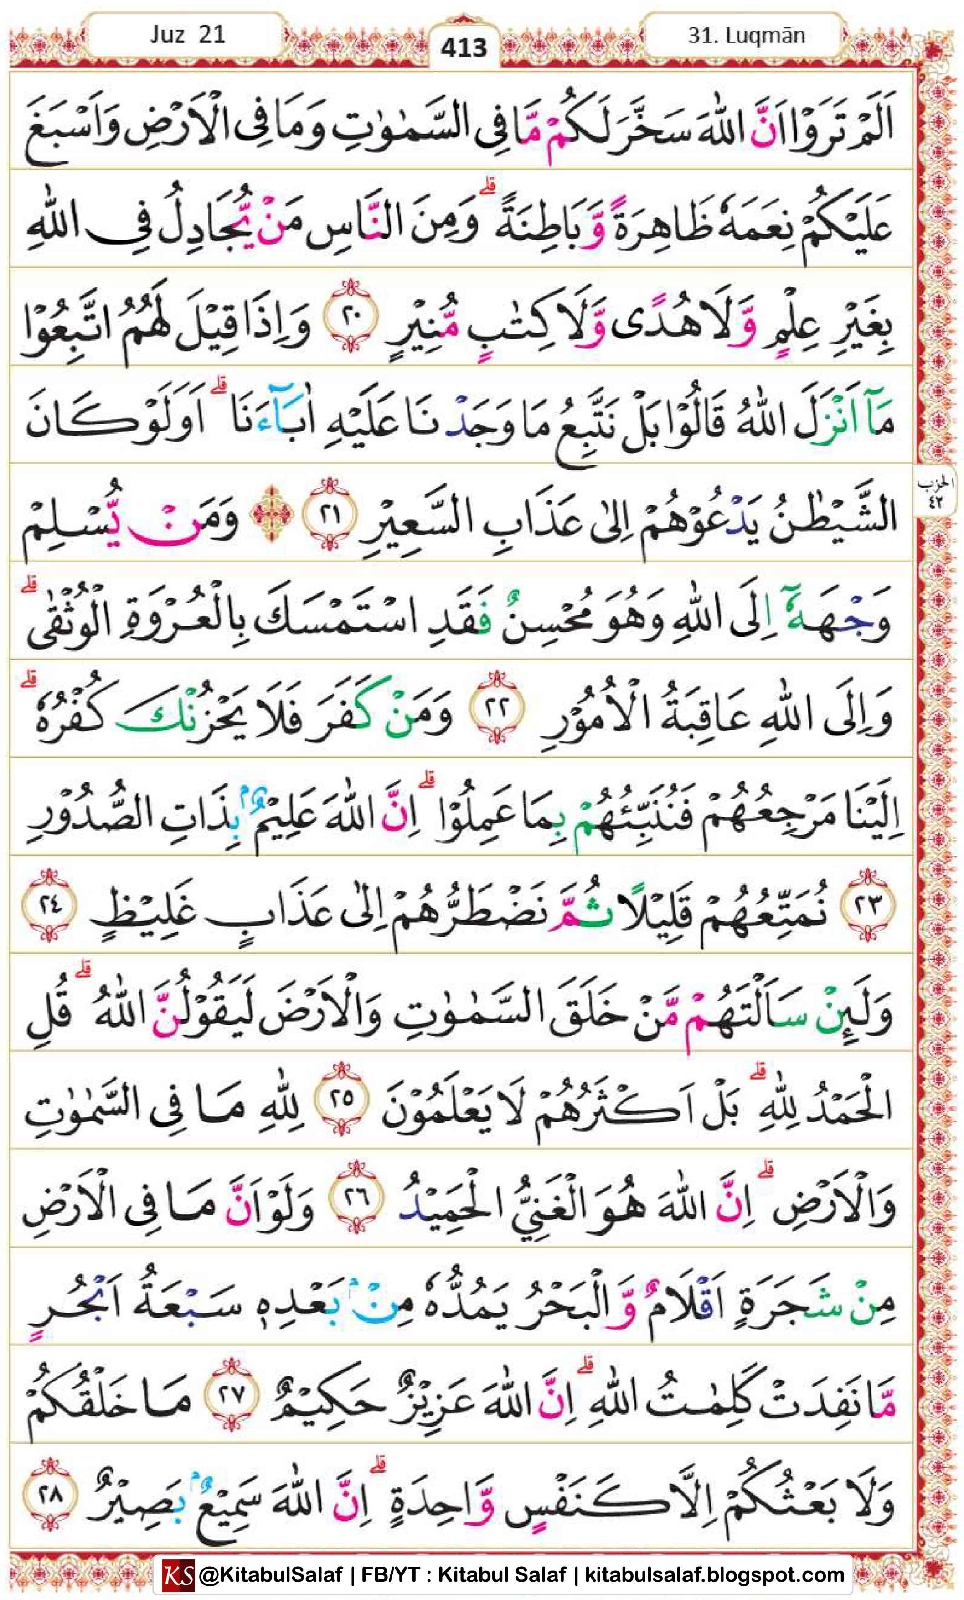 Juz 21
413
31. Luqmān
اَلَمْ تَرَوْا اَنَّ اللّٰهَ سَخَّرَ لَكُمْ مَّا فِى السَّمٰوٰتِ وَمَا فِى الْاَرْضِ وَاَسْبَغَ
عَلَيْكُمْ نِعَمَهٗ ظَاهِرَةً وَّبَاطِنَةً ۗ وَمِنَ النَّاسِ مَنْ يُّجَادِلُ فِى اللّٰهِ
بِغَيْرِ عِلْمٍ وَّلَا هُدًى وَّلَا كِتٰبٍ مُّنِيْرٍ ٢٠ وَاِذَا قِيْلَ لَهُمُ اتَّبِعُوْا
مَآ اَنْزَلَ اللّٰهُ قَالُوْا بَلْ نَتَّبِعُ مَا وَجَدْنَا عَلَيْهِ اٰبَآءَنَا ۗ اَوَلَوْ كَانَ
الشَّيْطٰنُ يَدْعُوْهُمْ اِلٰى عَذَابِ السَّعِيْرِ ٢١ وَمَنْ يُّسْلِمْ
الحزب
٤٢
وَجْهَهٗٓ اِلَى اللّٰهِ وَهُوَ مُحْسِنٌ فَقَدِ اسْتَمْسَكَ بِالْعُرْوَةِ الْوُثْقٰى ۗ
وَاِلَى اللّٰهِ عَاقِبَةُ الْاُمُوْرِ ٢٢ وَمَنْ كَفَرَ فَلَا يَحْزُنْكَ كُفْرُهٗ ۗ
اِلَيْنَا مَرْجِعُهُمْ فَنُنَبِّئُهُمْ بِمَا عَمِلُوْا ۗ اِنَّ اللّٰهَ عَلِيْمٌۢ بِذَاتِ الصُّدُوْرِ
٢٣ نُمَتِّعُهُمْ قَلِيْلًا ثُمَّ نَضْطَرُّهُمْ اِلٰى عَذَابٍ غَلِيْظٍ ٢٤
وَلَىِٕنْ سَاَلْتَهُمْ مَّنْ خَلَقَ السَّمٰوٰتِ وَالْاَرْضَ لَيَقُوْلُنَّ اللّٰهُ ۗ قُلِ
الْحَمْدُ لِلّٰهِ ۗ بَلْ اَكْثَرُهُمْ لَا يَعْلَمُوْنَ ٢٥ لِلّٰهِ مَا فِى السَّمٰوٰتِ
وَالْاَرْضِ ۗ اِنَّ اللّٰهَ هُوَ الْغَنِيُّ الْحَمِيْدُ ٢٦ وَلَوْ اَنَّ مَا فِى الْاَرْضِ
مِنْ شَجَرَةٍ اَقْلَامٌ وَّالْبَحْرُ يَمُدُّهٗ مِنْۢ بَعْدِهٖ سَبْعَةُ اَبْحُرٍ
مَّا نَفِدَتْ كَلِمٰتُ اللّٰهِ ۗ اِنَّ اللّٰهَ عَزِيْزٌ حَكِيْمٌ ٢٧ مَا خَلْقُكُمْ
وَلَا بَعْثُكُمْ اِلَّا كَنَفْسٍ وَّاحِدَةٍ ۗ اِنَّ اللّٰهَ سَمِيْعٌۢ بَصِيْرٌ ٢٨
KS @KitabulSalaf | FB/YT : Kitabul Salaf | kitabulsalaf.blogspot.com